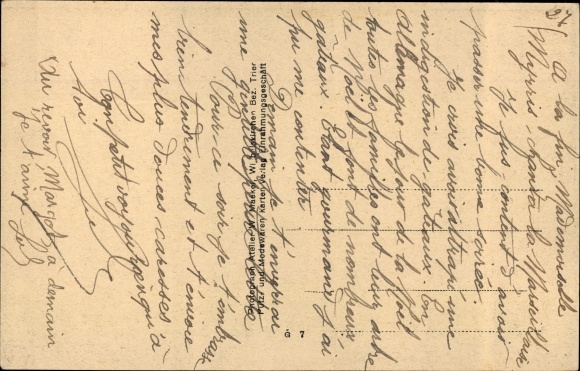 27/
A la fin Mademoiselle
Myrris
Je fus content d'avoir
passer une bonne soirée.
Je crois avoir attrapé une
indigestion de gateaux En
Allemagne le jour de la Noël
toutes les familles ont leur arbre
de Noël font de nombreux
gâteaux Etant gourmand j'ai
pu me contenter
Demain je t'enverrai
une
Pour ce soir je t'embrasse
bien tendrement et t'envoie
mes plus douces caresses
Ton petit qui à
toi
Au revoir Margot à demain
je t'aime
Photograph. Atelier W. Maeker, Wittlich Bez. Trier
Putz- und Modewaren Kartenverlag Einrahmungsgeschäft
G 7